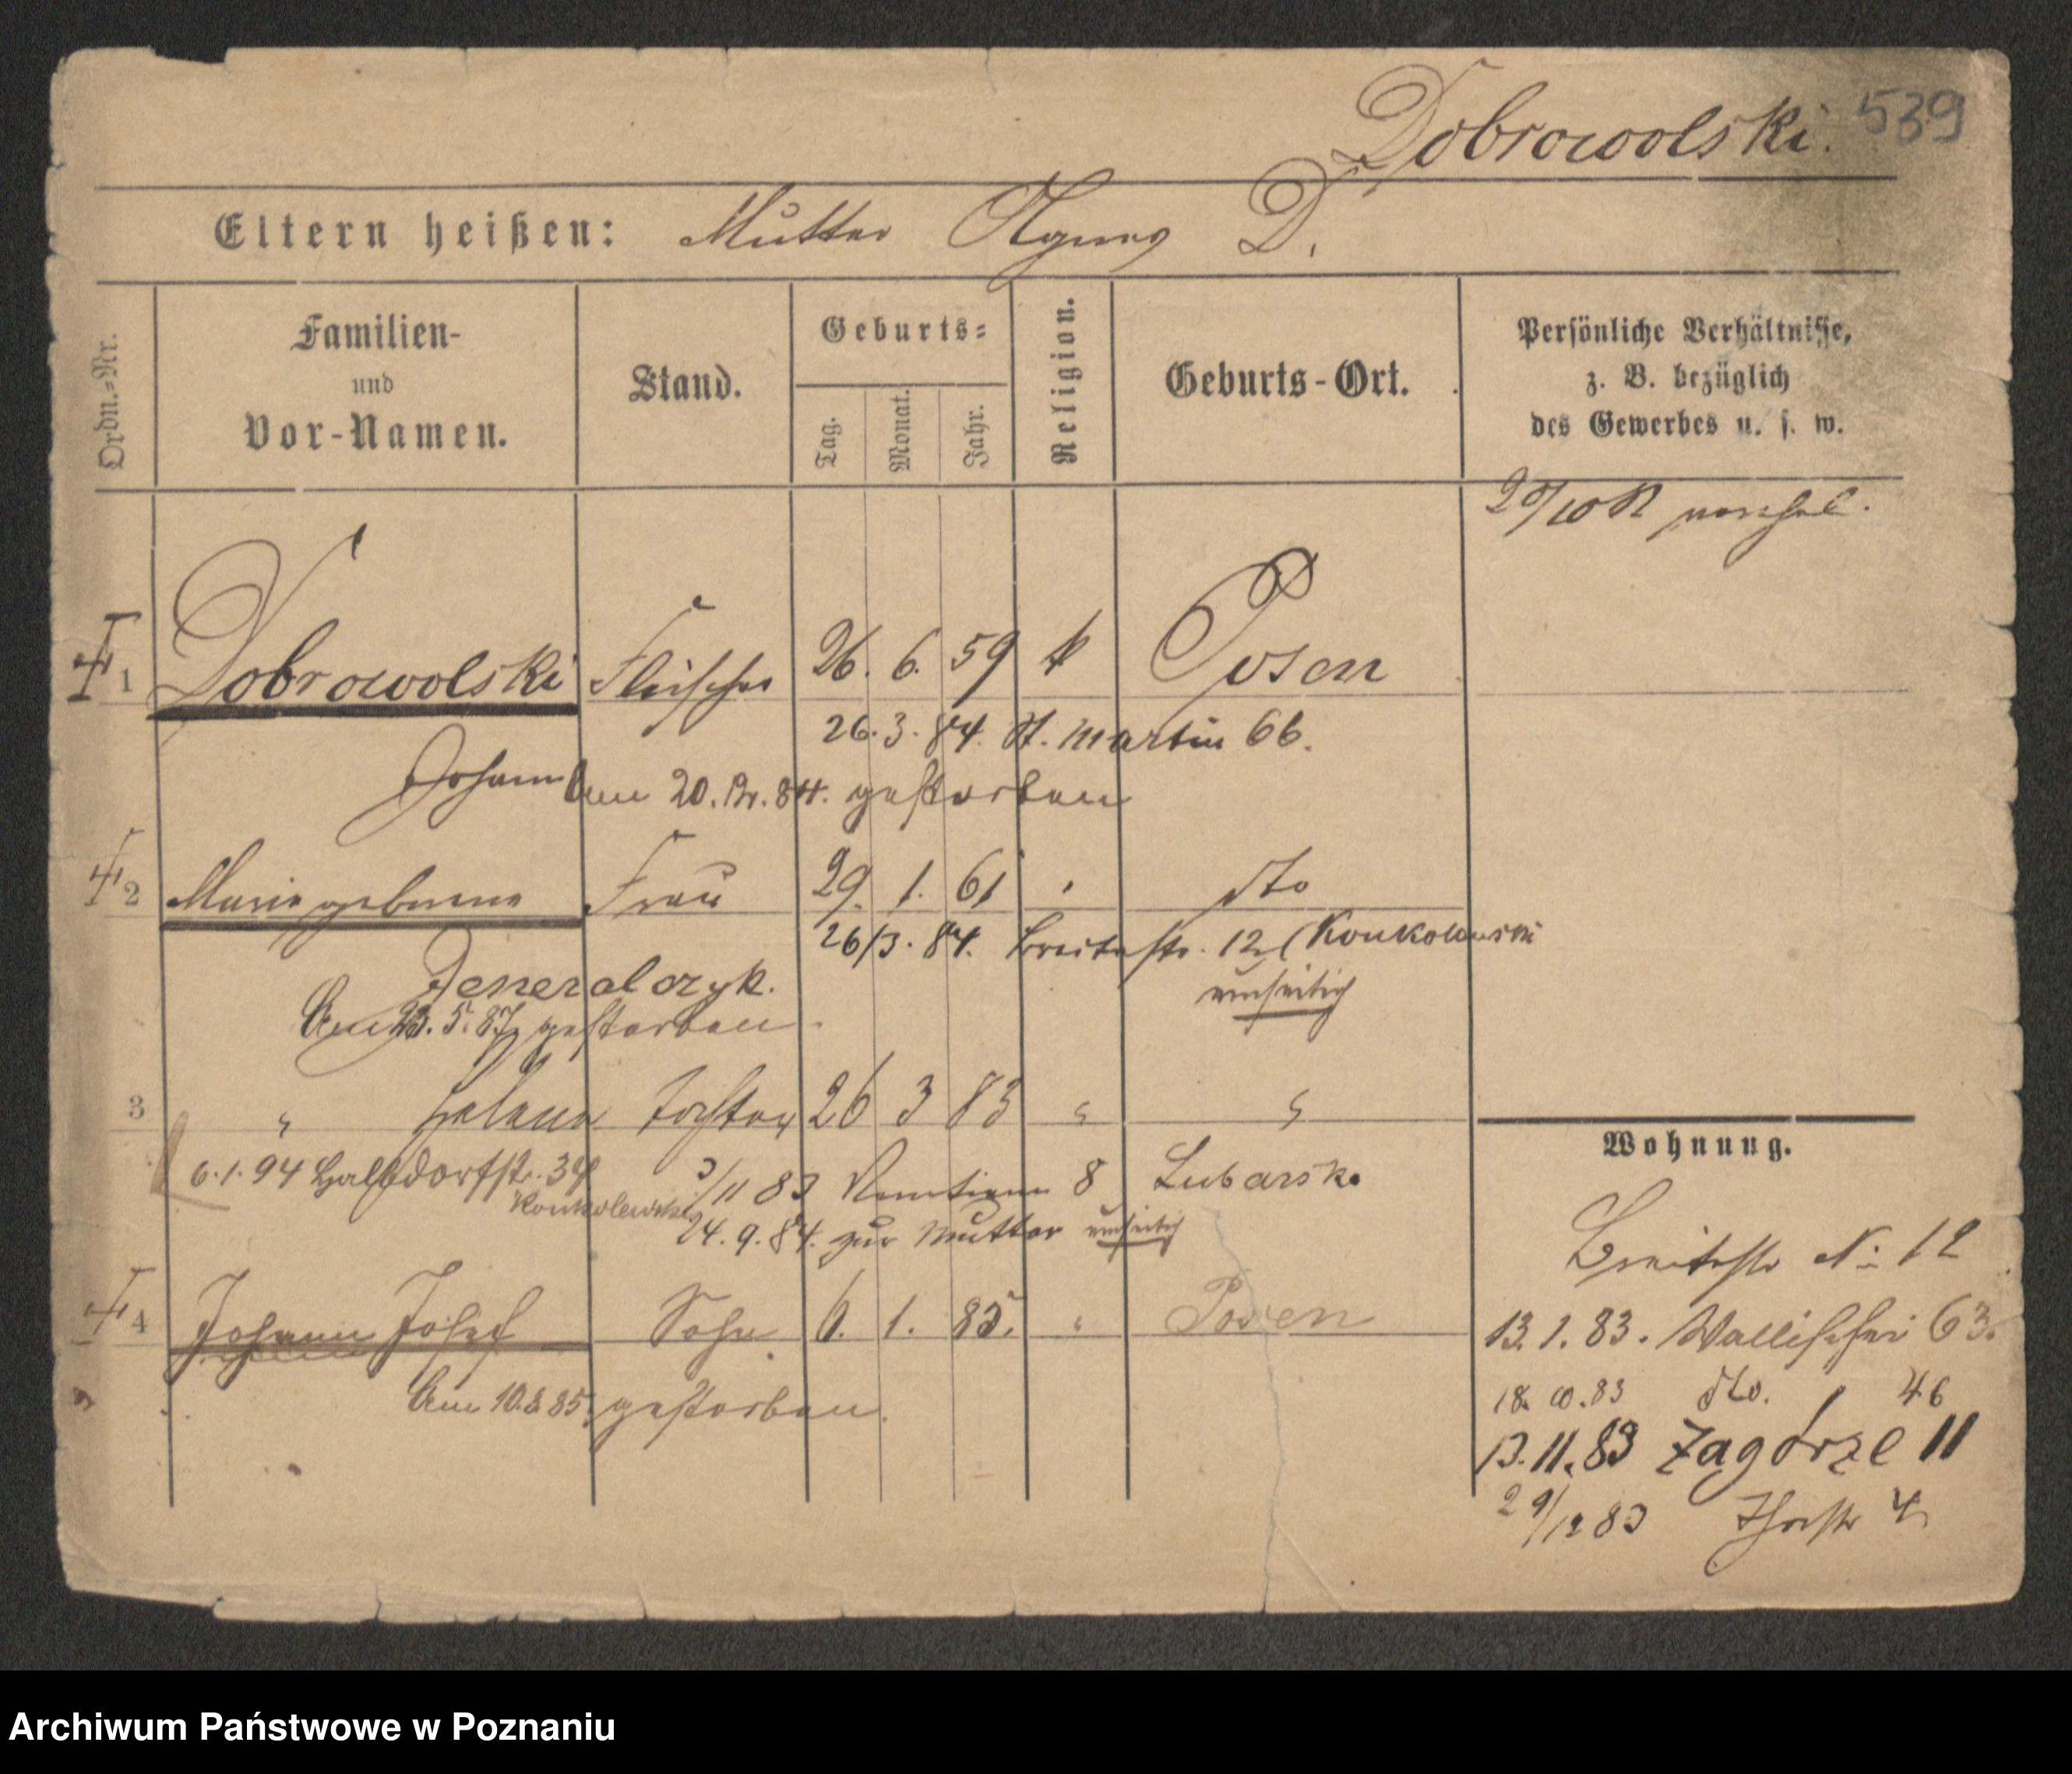 Dobrowolski. 539
Eltern heißen: Mutter Agnes D.
Ordn.-Nr.
Familien-
und
Vor-Namen.
Stand.
Geburts-
Tag. Monat. Jahr.
Religion.
Geburts-Ort.
Persönliche Verhältnisse,
z. B. bezüglich
des Gewerbes u. s. w.
1 Dobrowolski Fleischer 26. 6. 59 k Posen
26. 3. 84. St. Martin 66.
Johann Am 20. 12. 84. gestorben
2 Marie geborene Frau 29. 1. 61 dto
26/3. 84. Breitestr. 12 (Konkolewski
umseitig
Generalczyk.
Am 23. 5. 87 gestorben.
3 " Helene Tochter 26 3 83 " "
6. 1. 94 Halbdorfstr. 34
Konkolewski
3/11 83 8 Lubarsk.
24. 9. 84. zur Mutter umseitig
4 Johann Josef Sohn 6. 1. 85. " Posen
Am 10. 3. 85. gestorben.
Wohnung.
Breitestr No 12
13. 1. 83. Wallischei 63.
18. 10. 83 dto. 46
13. 11. 83 Zagórze 11
29/12 83 Thorstr 4
Archiwum Państwowe w Poznaniu